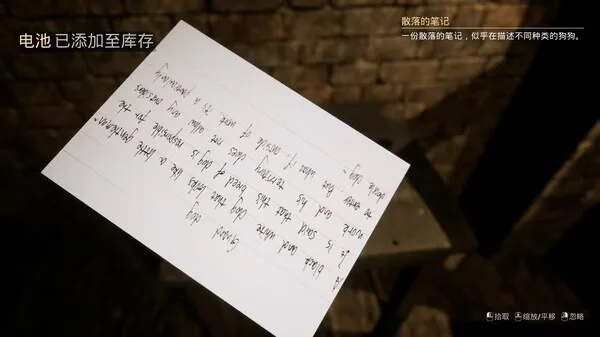 电池 已添加至库存
散落的笔记
一份散落的笔记，似乎在描述不同种类的狗狗。
Guard dog
A black and white dog that looks like a little gentleman~
It is said that this breed of dog is responsible for the
work and his territory does not allow any outsiders
to enter. But what if outside of work it's a particularly
docile dog~
拾取 缩放/平移 忽略